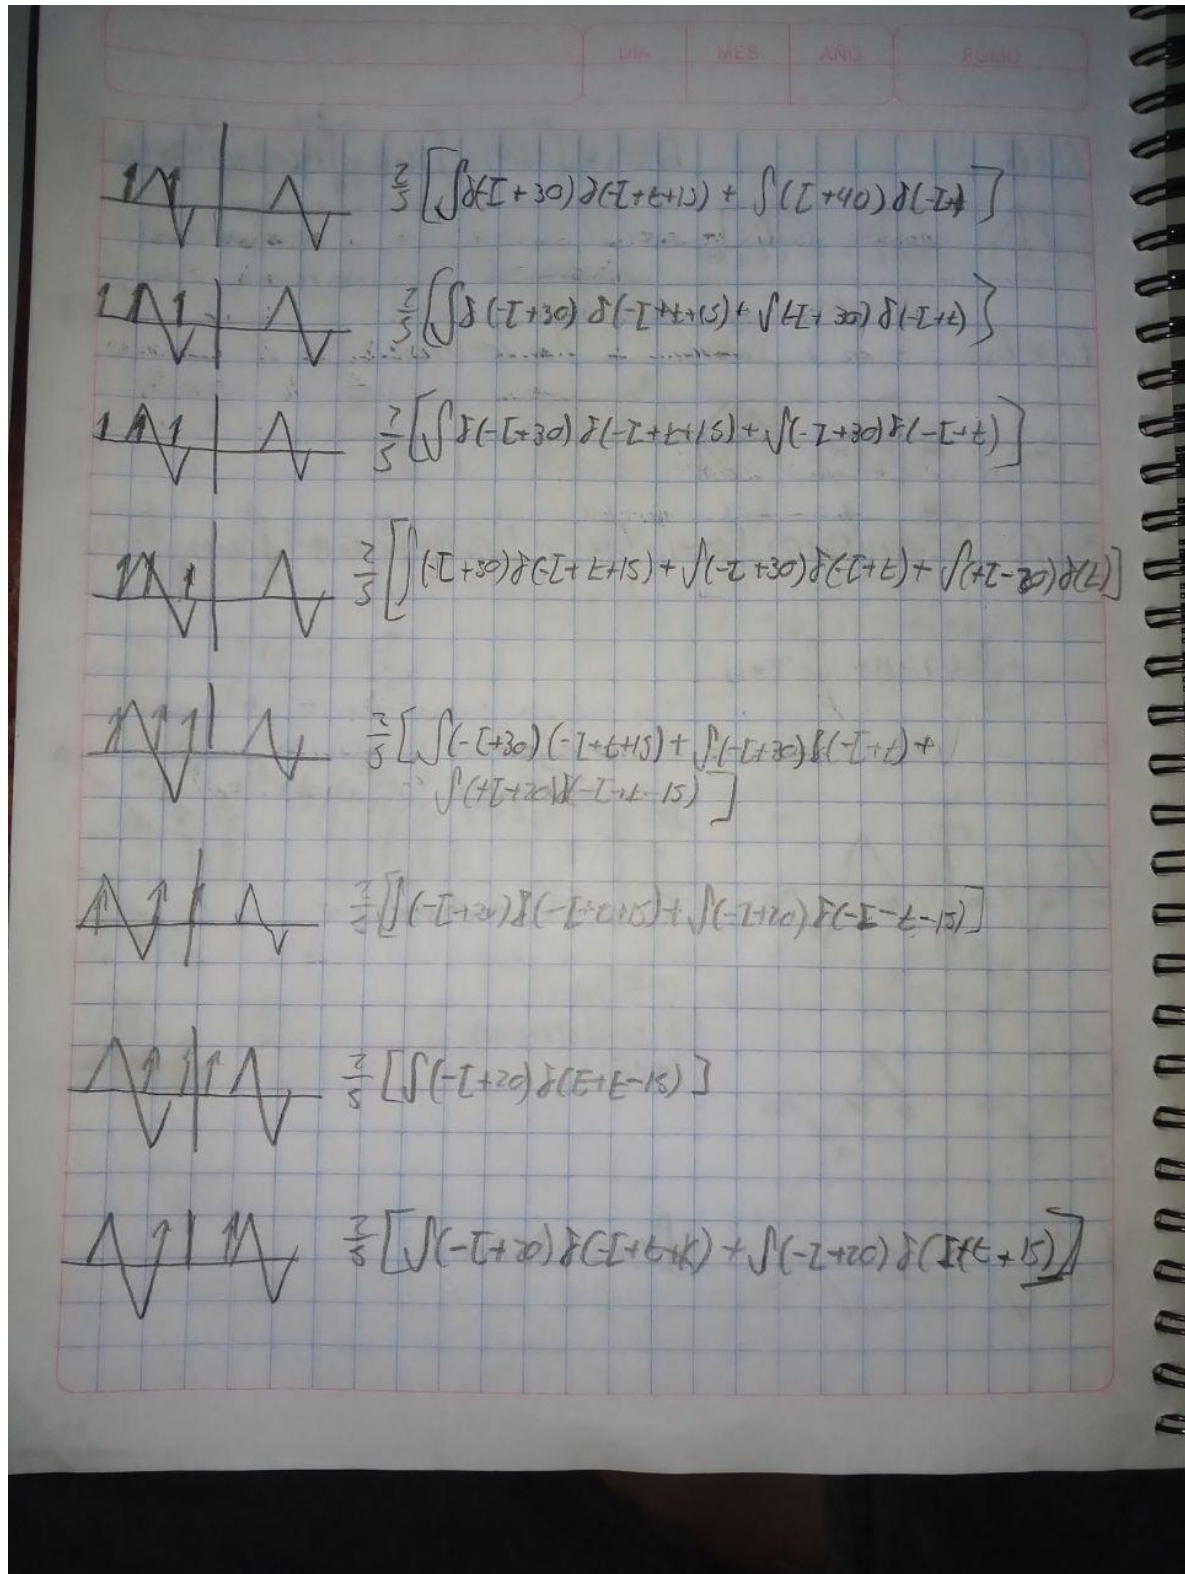 DIA MES AÑO FOLIO
2/5 [∫δ(-τ+30) δ(-τ+t+15) + ∫(τ+40) δ(-τ+t]
2/5 {∫δ(-τ+30) δ(-τ+t+15) + ∫(-τ+30) δ(-τ+t)}
2/5 [∫δ(-τ+30) δ(-τ+t+15) + ∫(-τ+30) δ(-τ+t)]
2/5 [∫(-τ+30) δ(-τ+t+15) + ∫(-τ+30) δ(-τ+t) + ∫(+τ-20) δ(t)]
2/5 [∫(-τ+30) (-τ+t+15) + ∫(-τ+30) δ(-τ+t) +
∫(+τ+20) δ(-τ+t-15)]
2/5 [∫(-τ+20) δ(-τ+t+15) + ∫(-τ+20) δ(-τ-t-15)]
2/5 [∫(-τ+20) δ(τ+t-15)]
2/5 [∫(-τ+20) δ(-τ+t+) + ∫(-τ+20) δ(τ+t+15)]